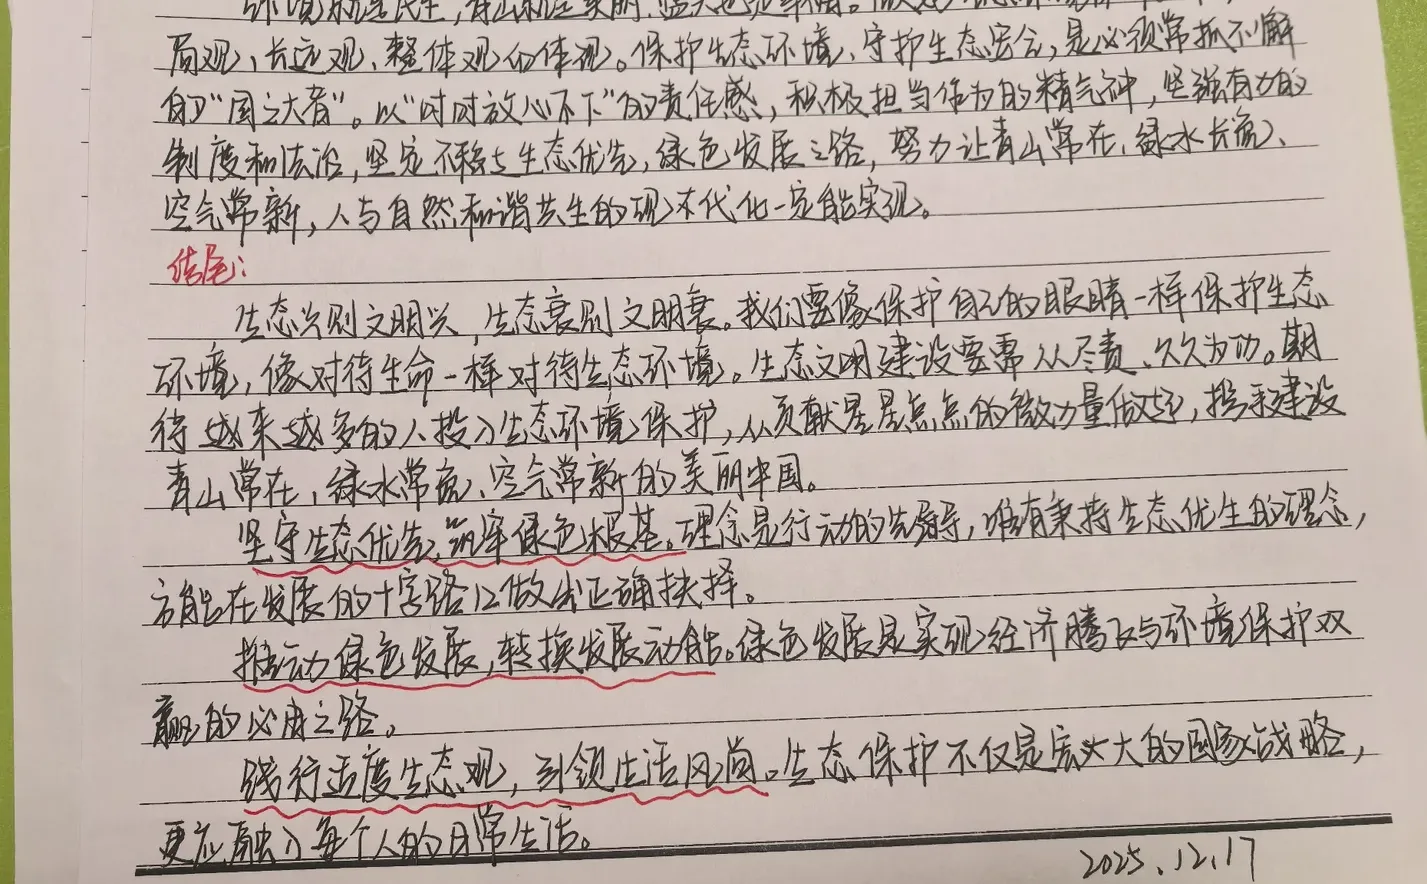 环境就是民生,青山就是美丽,蓝天也是幸福。
局观、长远观、整体观的体现。保护生态环境、守护生态安全,是必须常抓不懈
的“国之大者”。以“时时放心不下”的责任感,积极担当作为的精气神,坚强有力的
制度和法治,坚定不移走生态优先,绿色发展之路,努力让青山常在、绿水长流、
空气常新,人与自然和谐共生的现代化一定能实现。
结尾:
生态兴则文明兴,生态衰则文明衰。我们要像保护自己的眼睛一样保护生态
环境,像对待生命一样对待生态环境。生态文明建设要需从尽责、久久为功。期
待越来越多的人投入生态环境保护,从贡献星星点点的微力量做起,携手建设
青山常在、绿水常流、空气常新的美丽中国。
坚守生态优先,筑牢绿色根基。理念是行动的先导,唯有秉持生态优生的理念,
方能在发展的十字路口做出正确抉择。
推动绿色发展,转换发展动能。绿色发展是实现经济腾飞与环境保护双
赢的必由之路。
践行适度生态观,引领生活风尚。生态保护不仅是宏大的国家战略,
更应融入每个人的日常生活。
2025.12.17